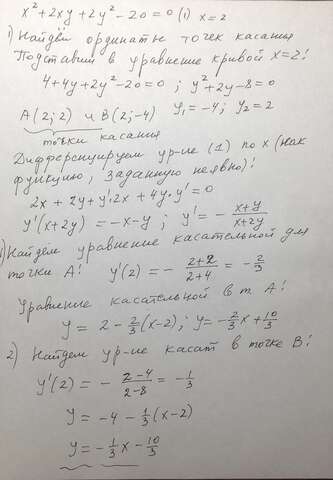 x² + 2xy + 2y² - 20 = 0 (1) x = 2
1) Найдём ординаты точек касания
Подставим в уравнение кривой x = 2:
4 + 4y + 2y² - 20 = 0 ; y² + 2y - 8 = 0
A(2; 2) и B(2; -4) y₁ = -4; y₂ = 2
точки касания
Дифференцируем ур-ие (1) по x (как
функцию, заданную неявно):
2x + 2y + y'·2x + 4y·y' = 0
y'(x + 2y) = -x - y ; y' = - (x+y)/(x+2y)
1) Найдем уравнение касательной для
точки A: y'(2) = - (2+2)/(2+4) = - 2/3
Уравнение касательной в т. A:
y = 2 - 2/3 (x-2) ; y = - 2/3 x + 10/3
2) Найдем ур-ие касат в точке B:
y'(2) = - (2-4)/(2-8) = - 1/3
y = -4 - 1/3 (x-2)
y = - 1/3 x - 10/3